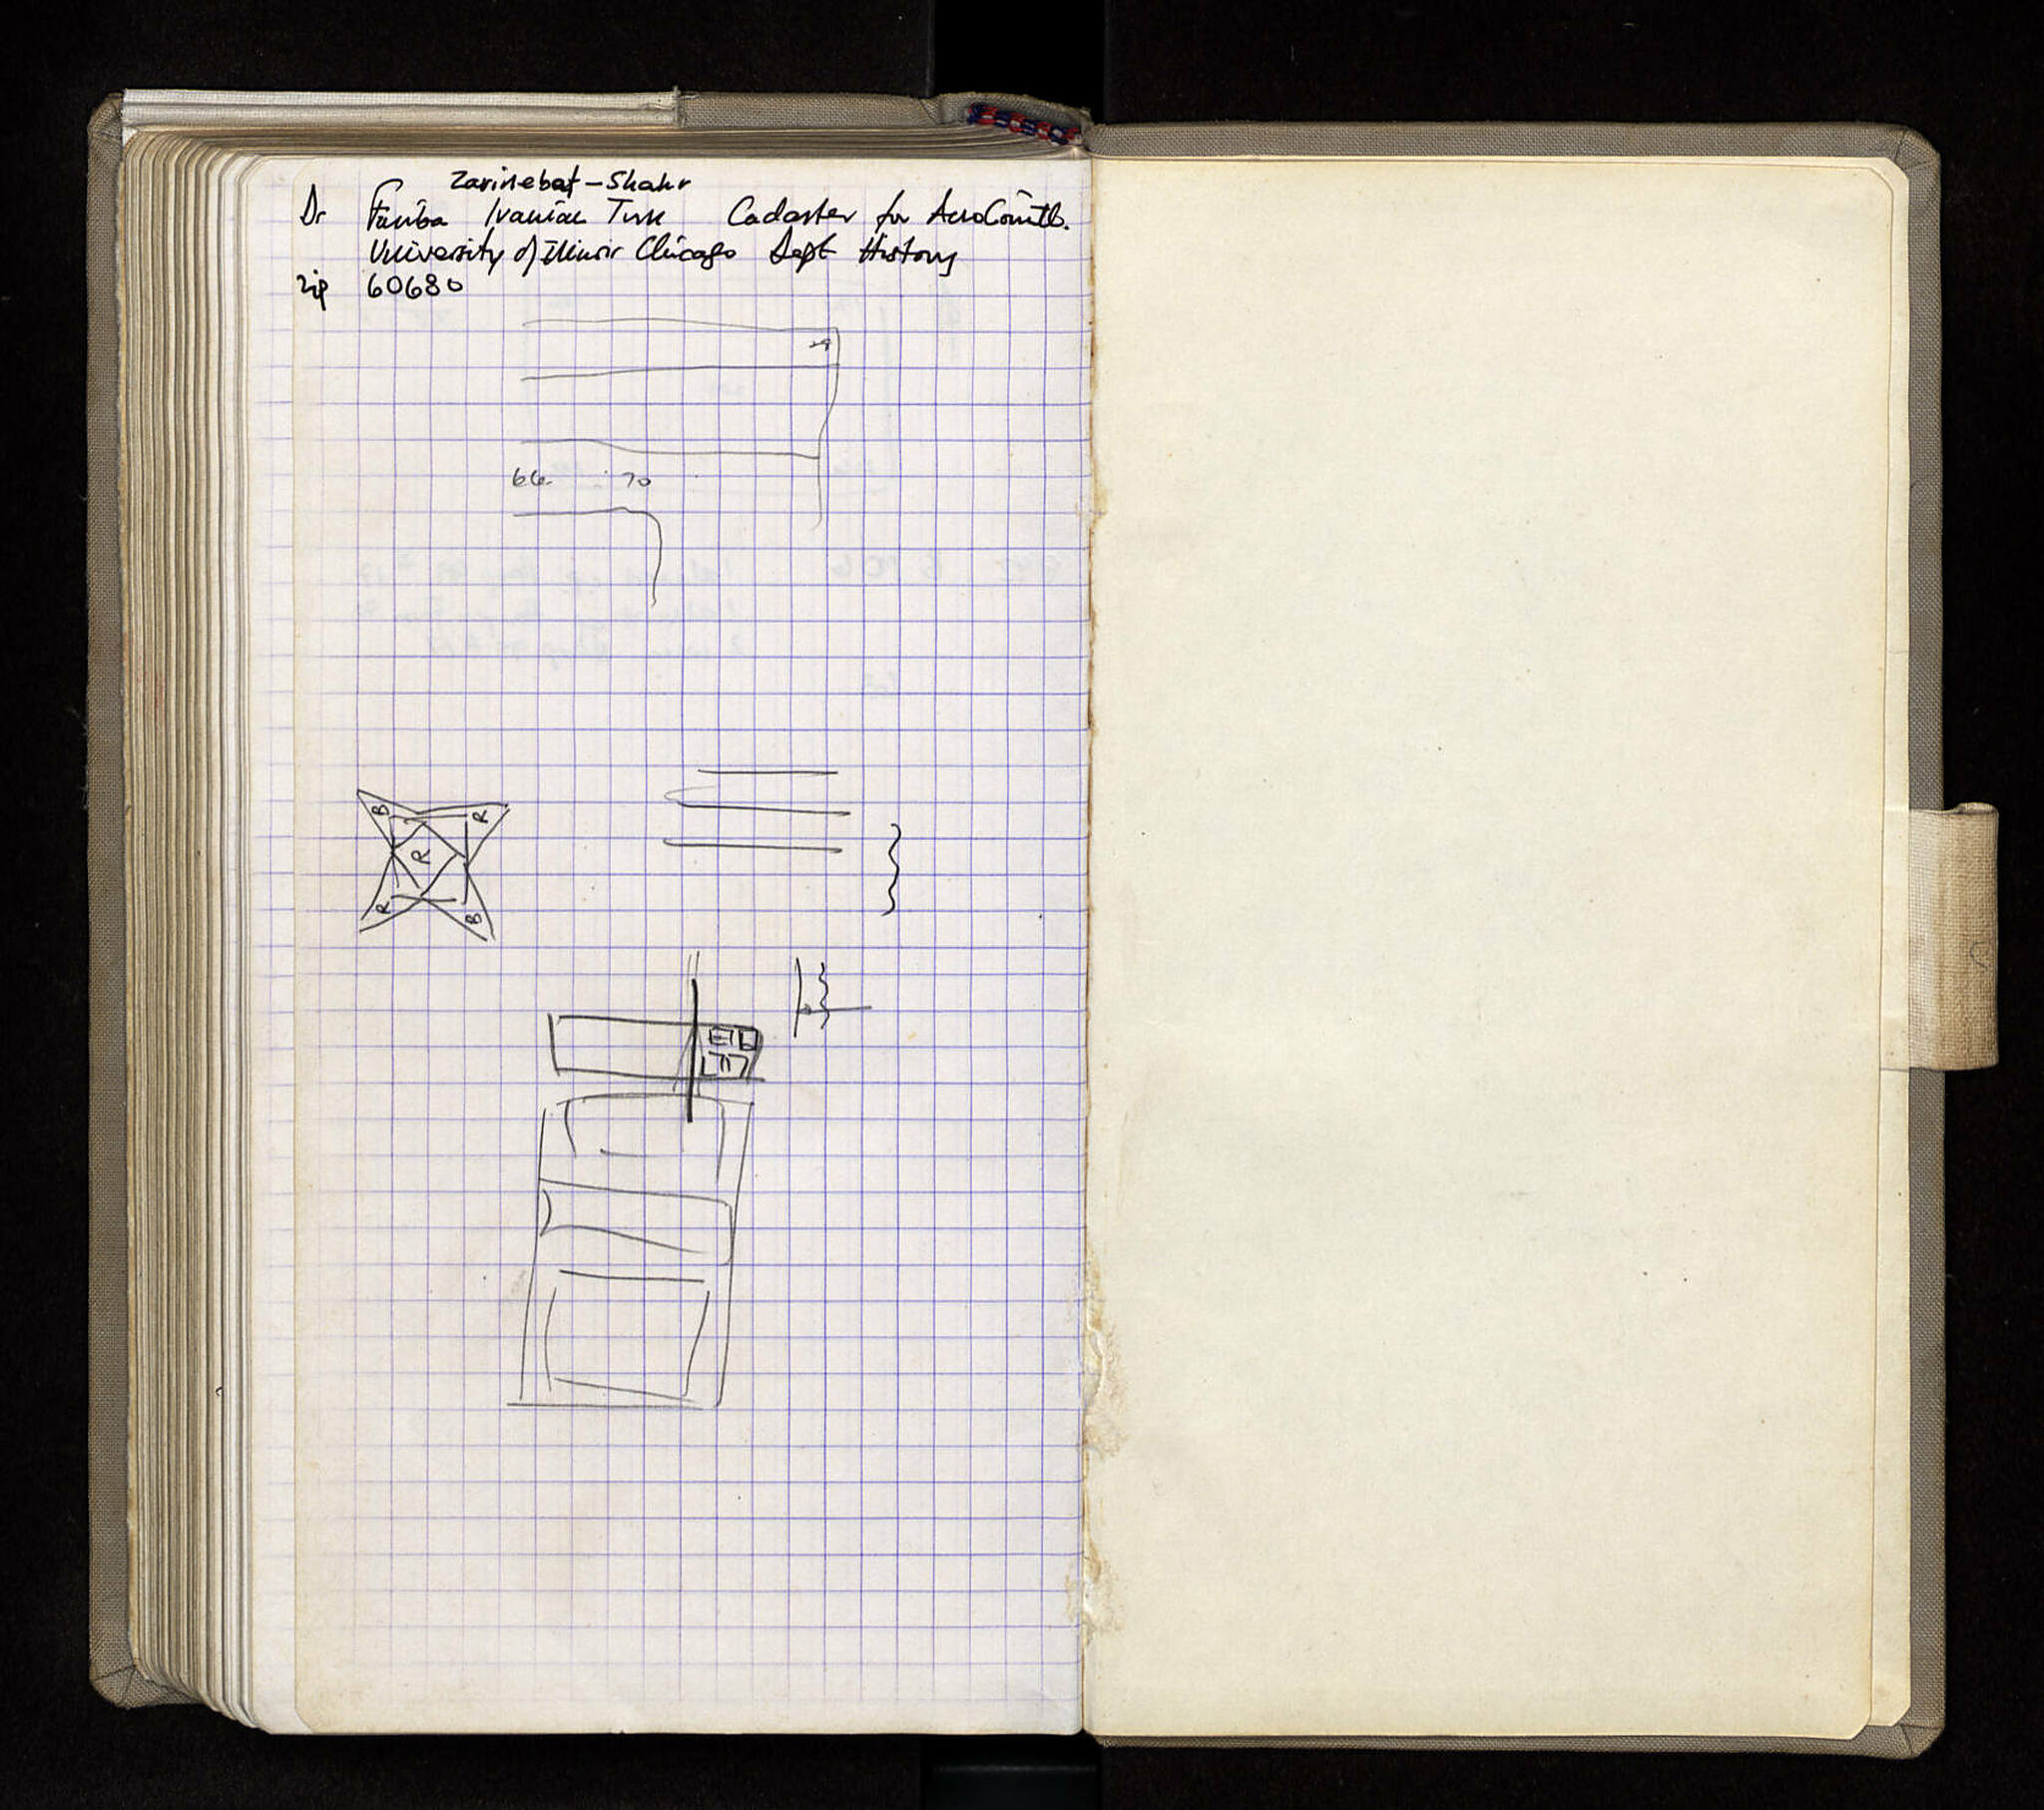 Zarinebaf-Shahr
Dr Fariba Iranian Turk Cadaster for AcroCorinth.
University of Illinois Chicago Dept History
Zip 60680
66. 70
B R
R
R B